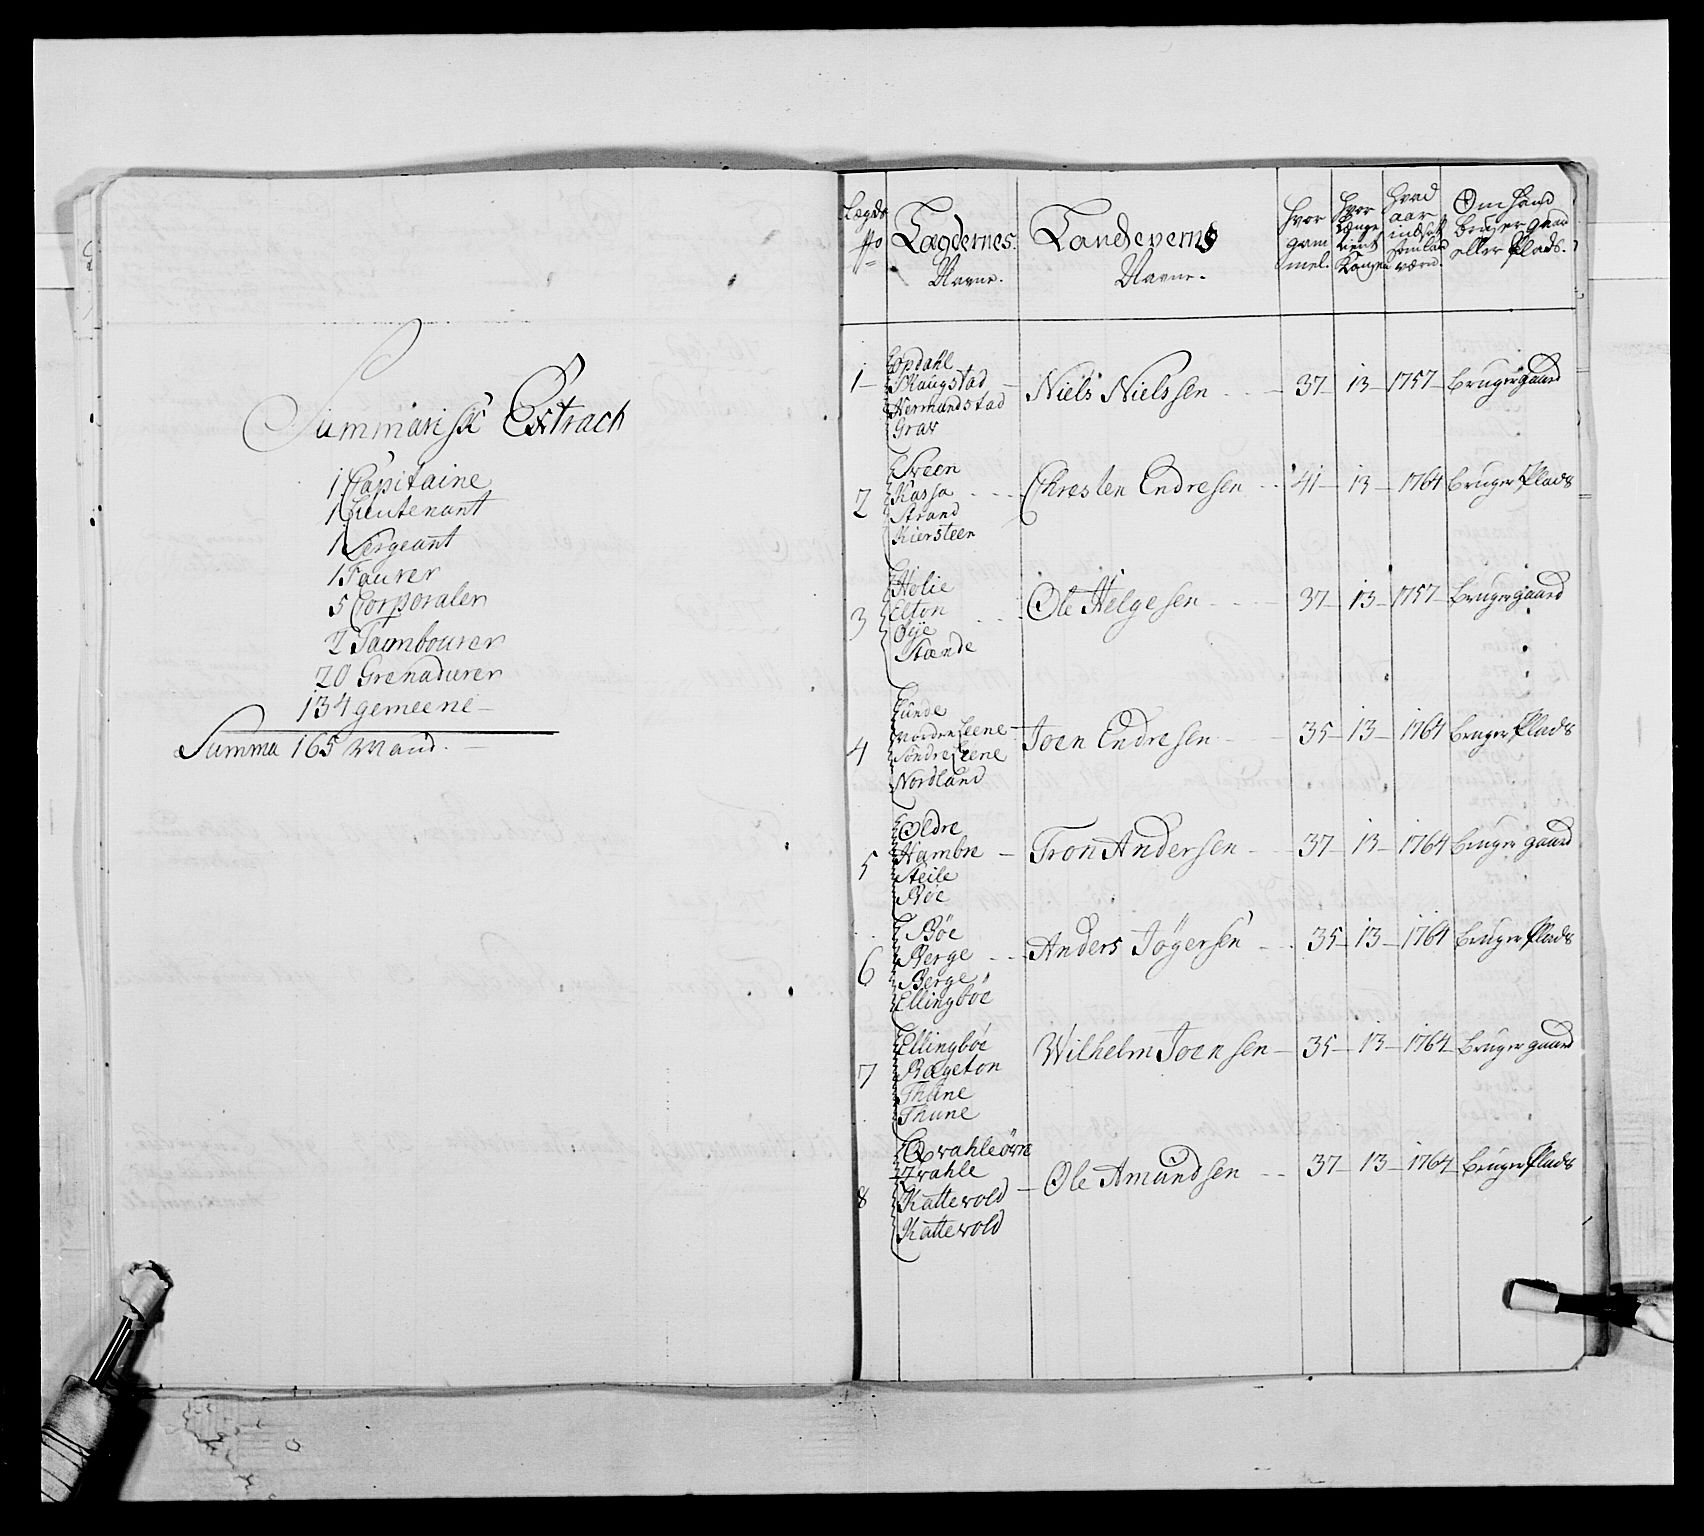 Summarisk Extrach
1 Capitaine
1 Lieutenant
1 Sergeant
1 Fourer
5 Corporaler
2 Tambourer
20 Grenaderer
134 gemeene
Summa 165 Mand.
Lægds No
Lægdernes Navne.
Landeverns Navne.
Hvor gammel.
Hvor længe tient Kongen
Hvad aar indsat som land værn.
Om hand bruger gaard eller Plads.
1 Opdahl
Skaugstad
Hermundstad
Grav
Niels Nielssen 37 13 1757 Bruger gaard
2 Sveen
Kassa
Strand
Kiersteen
Christen Endresen 41 13 1764 Bruger Plads
3 Holie
Elton
Øye
Stænde
Ole Helgesen 37 13 1757 Bruger gaard
4 Lunde
Norden Leene
Søndre Leene
Nordland
Joen Endresen 35 13 1764 Bruger Plads
5 Oldre
Hambre
Steile
Røe
Tron Andersen 37 13 1764 Bruger gaard
6 Bøe
Berge
Berge
Ellingbøe
Anders Jøgersen 35 13 1764 Bruger Plads
7 Ellingbøe
Rogeton
Thune
Thune
Wilhelm Joensen 35 13 1764 Bruger gaard
8 Qvahleøvre
Qvahle
Kattevold
Kattevold
Ole Amundsen 37 13 1764 Bruger Plads